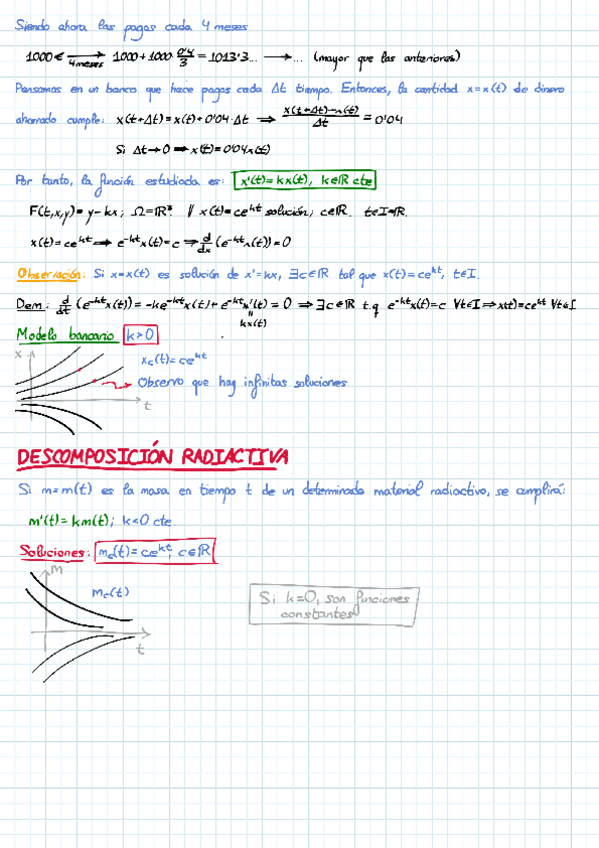 Siendo ahora las pagas cada 4 meses
1000€ → 4 meses 1000+1000 0'4/3 = 1013'3... → ... (mayor que las anteriores)
Pensamos en un banco que hace pagas cada Δt tiempo. Entonces, la cantidad x=x(t) de dinero
ahorrado cumple: x(t+Δt)=x(t)+0'04·Δt ⇒ x(t+Δt)-x(t)/Δt = 0'04
Si Δt→0 ⇒ x'(t)=0'04x(t)
Por tanto, la función estudiada es: x'(t)=kx(t), k∈ℝ cte
F(t,x,y)=y-kx; Ω=ℝ³ // x(t)=ce^kt solución; c∈ℝ. t∈I=ℝ.
x(t)=ce^kt ⇒ e^-kt x(t)=c ⇒ d/dx (e^-kt x(t))=0
Observación: Si x=x(t) es solución de x'=kx, ∃c∈ℝ tal que x(t)=ce^kt, t∈I.
Dem: d/dt (e^-kt x(t)) = -ke^-kt x(t) + e^-kt x'(t) = 0 ⇒ ∃c∈ℝ t.q e^-kt x(t)=c ∀t∈I ⇒ x(t)=ce^kt ∀t∈I
=
kx(t)
Modelo bancario k>0
x
x_c(t)=ce^kt
Observo que hay infinitas soluciones
t
DESCOMPOSICIÓN RADIACTIVA
Si m=m(t) es la masa en tiempo t de un determinado material radioactivo, se cumplirá:
m'(t)=km(t); k<0 cte
Soluciones: m_c(t)=ce^kt, c∈ℝ
m
m_c(t)
Si k=0, son funciones
constantes
t